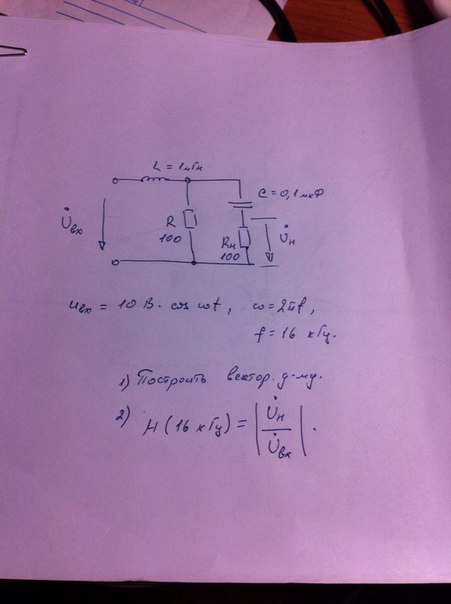 L = 1мГн
C = 0,1 мкФ
U̇вх
R
100
Rн
100
U̇н
uвх = 10 В · cos ωt, ω = 2πf,
f = 16 кГц.
1) Построить вектор. д-му.
2) H (16 кГц) = | U̇н / U̇вх | .